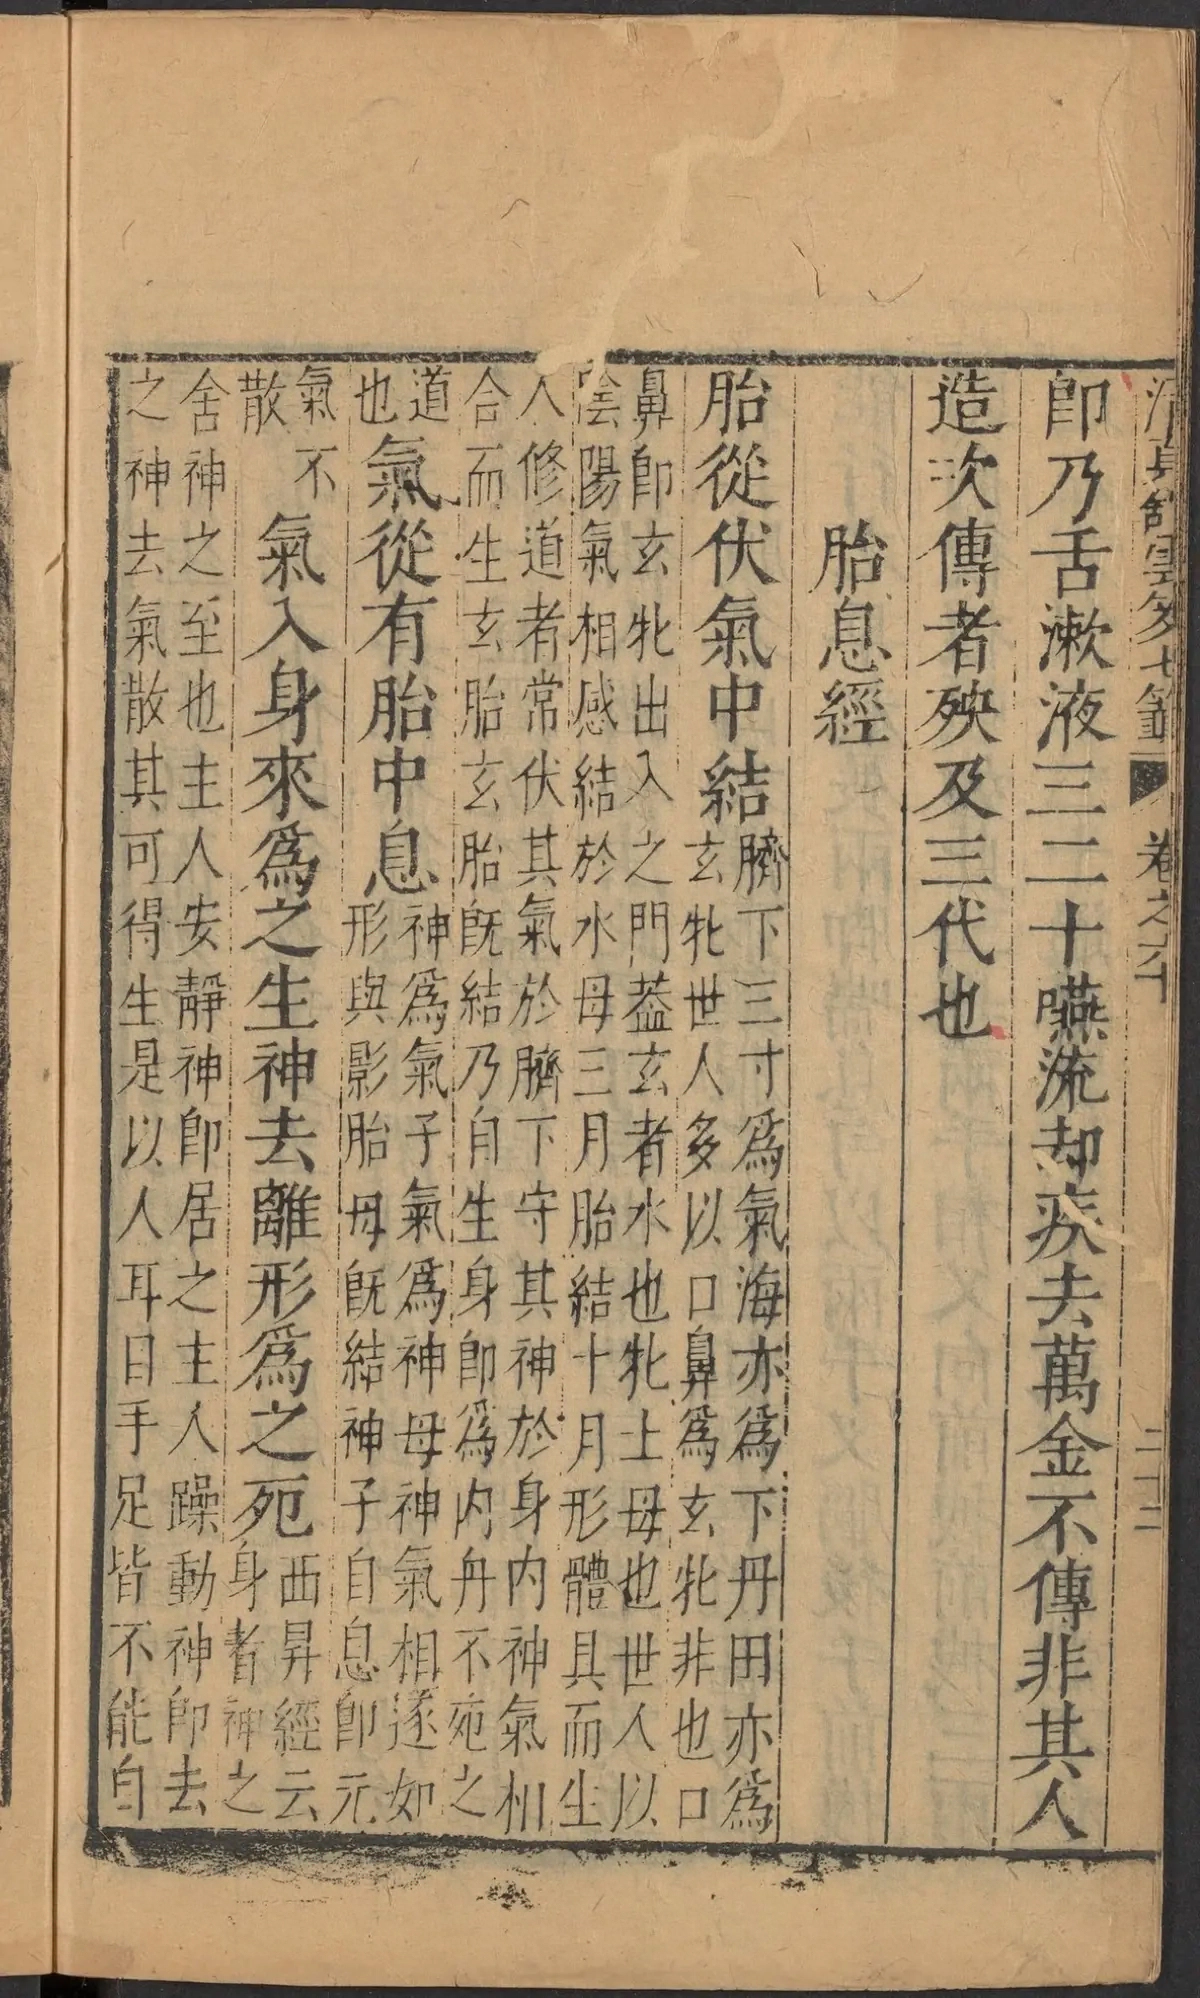 清真館雲笈七籖 卷之六十 二十二
卽乃舌漱液三二十嚥流却疾去萬金不傳非其人
造次傳者殃及三代也
胎息經
胎從伏氣中結臍下三寸爲氣海亦爲下丹田亦爲
玄牝世人多以口鼻爲玄牝非也口
鼻卽玄牝出入之門葢玄者水也牝上母也世人以
陰陽氣相感結於水母三月胎結十月形體具而生
人修道者常伏其氣於臍下守其神於身內神氣相
合而生玄胎玄胎旣結乃自生身卽爲內丹不死之
道
也氣從有胎中息神爲氣子氣爲神母神氣相逐如
形與影胎母旣結神子自息卽元
氣不
散氣入身來爲之生神去離形爲之死西昇經云
身者神之
舍神之至也主人安靜神卽居之主人躁動神卽去
之神去氣散其可得生是以人耳目手足皆不能自